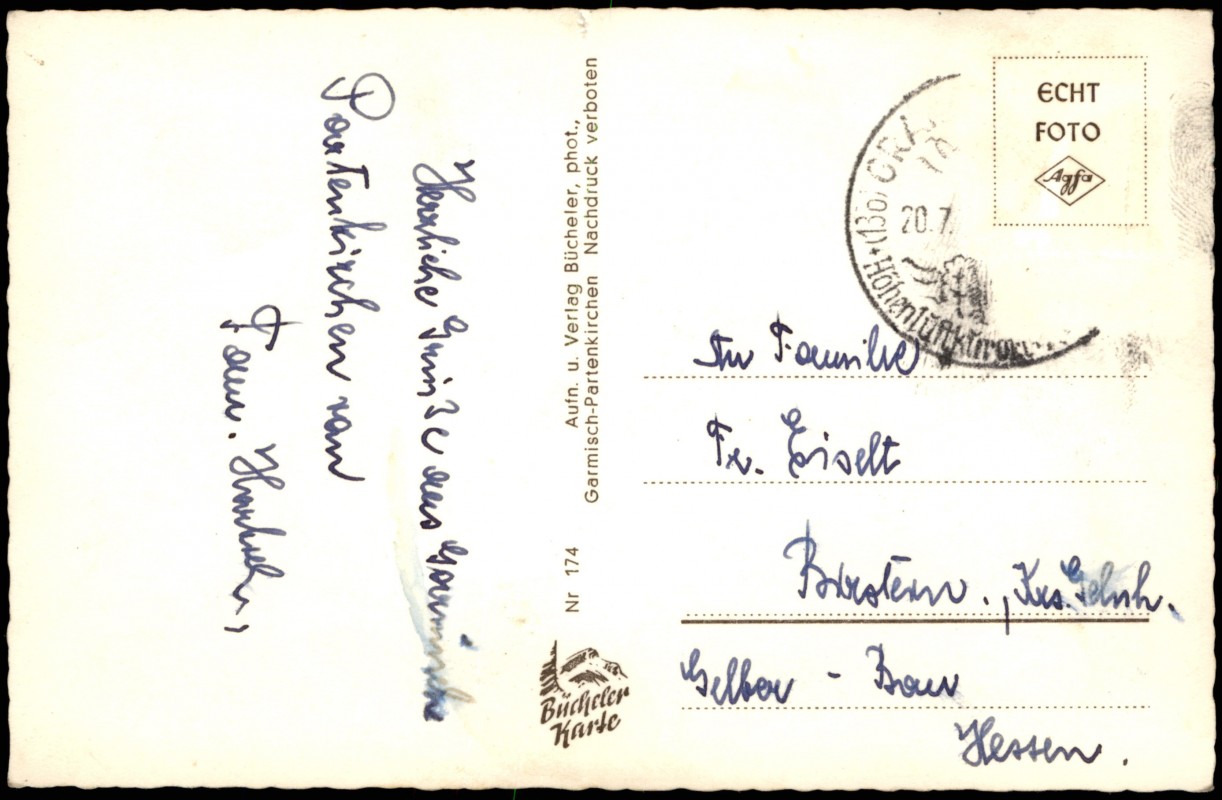 Herzliche Grüße aus Garmisch
Partenkirchen von
Fam.
Aufn. u. Verlag Bücheler, phot.,
Garmisch-Partenkirchen Nachdruck verboten
Nr 174
Bücheler
Karte
ECHT
FOTO
Agfa
(13b)
20.7.
Höhenluftkurort
An Familie
Fr. Eiselt
Birstein., Krs. Gelnh.
Gelber - Bau
Hessen.